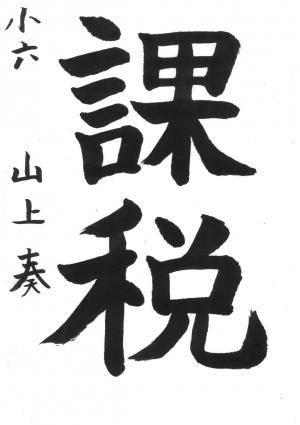 課税
小六 山上奏